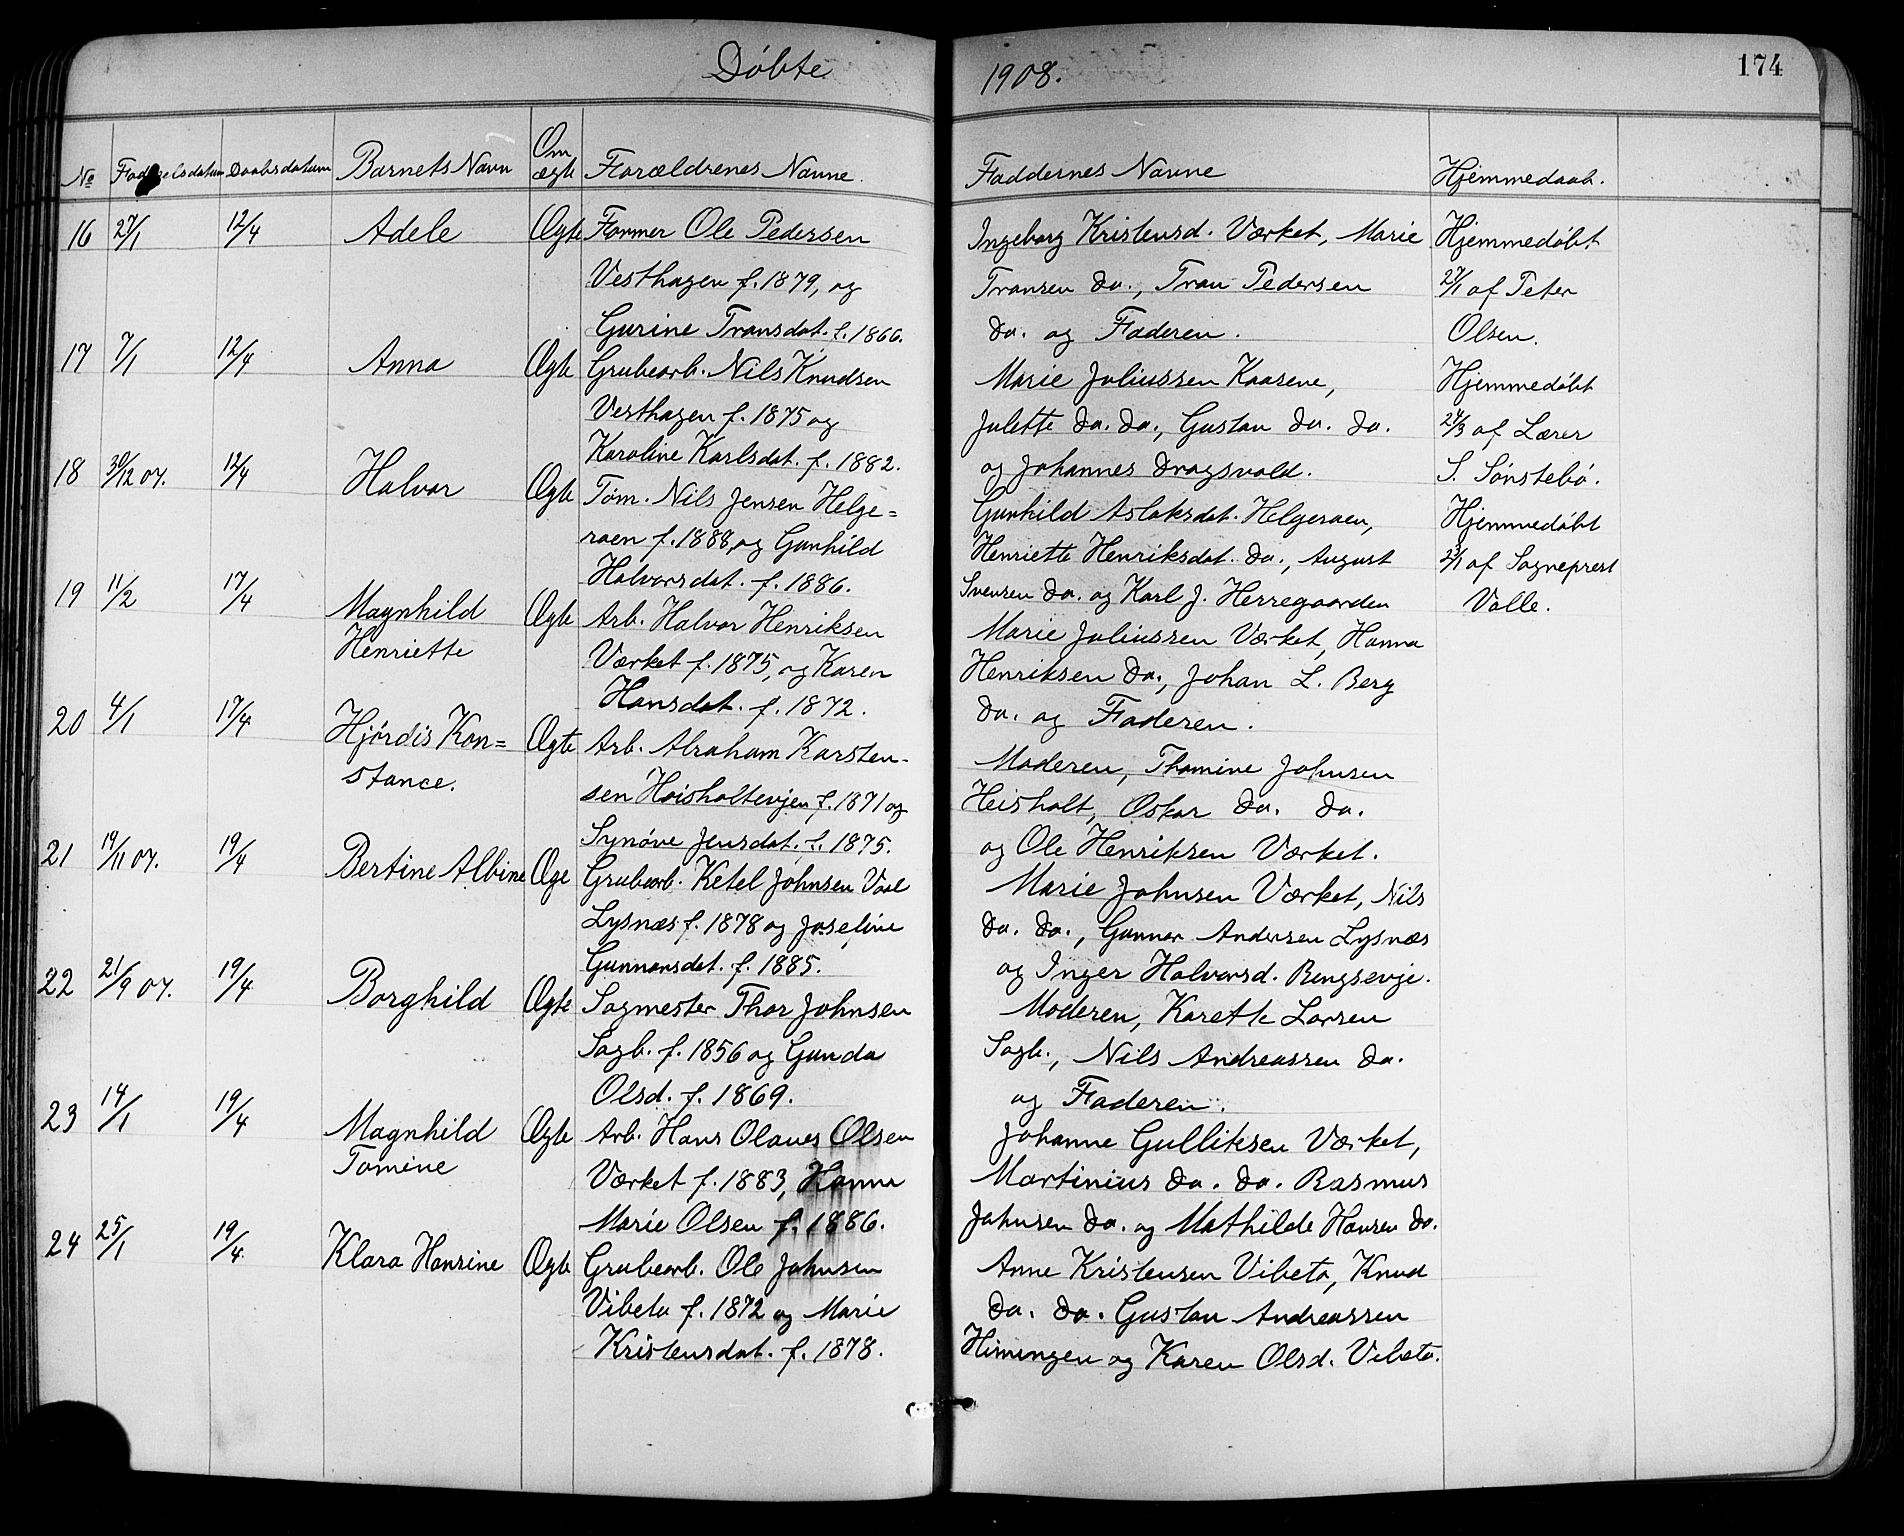 Döbte 1908. 174
No Fødselsdatum Daabsdatum Barnets Navn Om ægte Forældrenes Navne. Faddernes Navne Hjemmedaab.
16 27/1 12/4 Adele Ægte Former Ole Pedersen Ingeborg Kristensd. Værket, Marie Hjemmedöbt
Vesthagen f. 1879, og Transen do., Tran Pedersen 27/1 af Peter
Gurine Transdat. f. 1866. do. og Faderen. Olsen.
17 7/1 12/4 Anna Ægte Grubearb. Nils Knudsen Marie Juliussen Kaasene, Hjemmedöbt
Vesthagen f. 1875 og Julette do. do., Gustav do. do. 24/3 af Lærer
Karoline Karlsdat. f. 1882. og Johannes Dragsvold. S. Sönstebö.
18 30/12 07. 12/4 Halvor Ægte Töm. Nils Jensen Helge= Gunhild Aslaksdat. Helgeroen, Hjemmedöbt
roen f. 1888, og Gunhild Henriette Henriksdat. do., August 2/1 af Sogneprest
Halvorsdat. f. 1886. Svensen do. og Karl J. Herregaarden Valle.
19 11/2 17/4 Magnhild Ægte Arb. Halvor Henriksen Marie Juliussen Værket, Hanna
Henriette Værket f. 1875, og Karen Henriksen do., Johan L. Berg
Hansdat. f. 1872. do. og Faderen.
20 4/1 17/4 Hjördis Kon= Ægte Arb. Abraham Karsten- Moderen, Thomine Johnsen
stance. sen Heisholtevjen f. 1871 og Heisholt, Oskar do. do.
Synöve Jensdat. f. 1875. og Ole Henriksen Værket.
21 19/11 07. 19/4 Bertine Albine Æge Grubearb. Ketel Johnsen Vaal Marie Johnsen Værket, Nils
Lysnæs f. 1878 og Josefine do. do., Gunnar Andersen Lysnæs
Gunnarsdat. f. 1885. og Inger Halvorsd. Rengsevje.
22 21/9 07. 19/4 Borghild Ægte Sagmester Thor Johnsen Moderen, Karette Larsen
Sagb. f. 1856 og Gunda Sagb., Nils Andreassen do.
Olsd. f. 1869. og Faderen.
23 14/1 19/4 Magnhild Ægte Arb. Hans Olaves Olsen Johanne Gulliksen Værket,
Tomine Værket f. 1883, Hanna Martinius do. do. Rasmus
Marie Olsen f. 1886. Johnsen do. og Mathilde Hansen do.
24 25/1 19/4 Klara Hansine Ægte Grubearb. Ole Johnsen Anne Kristensen Vibeto, Knud
Vibeto f. 1872 og Marie do. do. Gustav Andreassen
Kristensdat. f. 1878. Himingen og Karen Olsd. Vibeto.